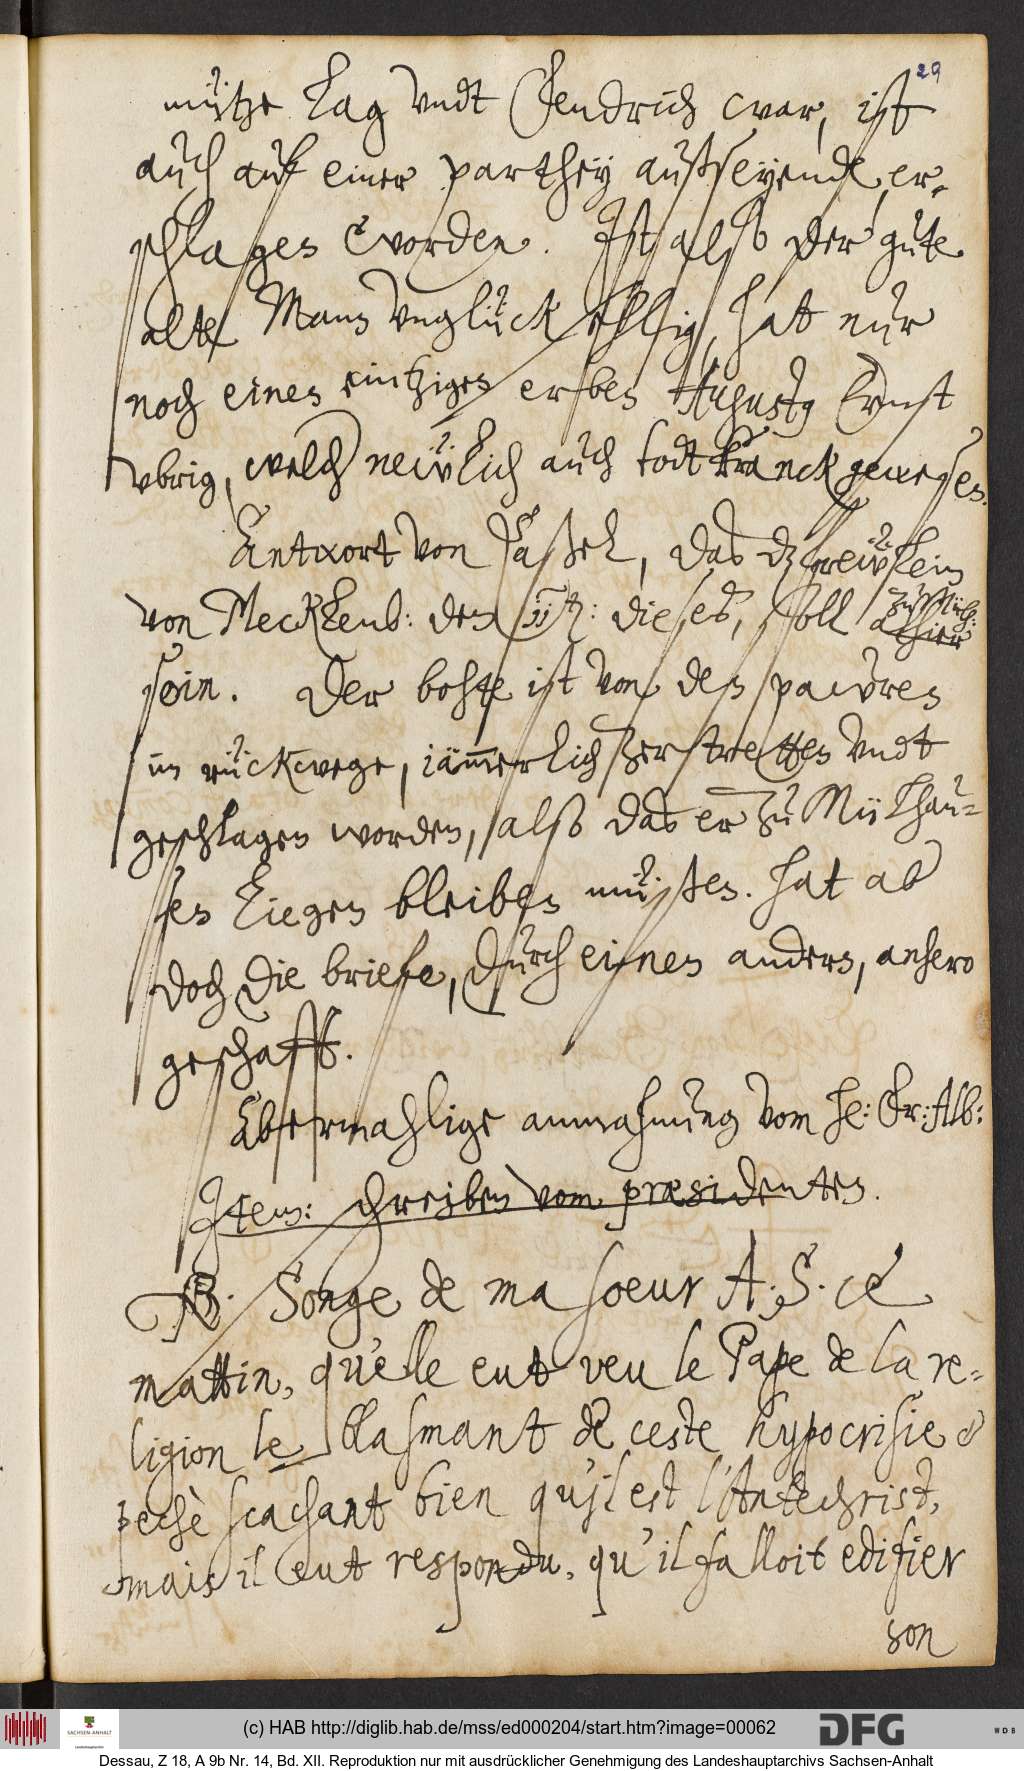 29
mütze lag undt Fendrich war, ist
auch auf einer parthey außseyende, er-
schlagen worden. Ist also der gute
alte Mann unglücksehlig, hat nur
noch einen eintzigen erben Augustg Ernst
vbrig, welch neẅlich auch todtkranck gewesen.
Antwort von Caßel, das dz frewlein
von Mecklenb: den iitn: dieses, soll zu Mülh:
sein. Der bohte ist von den pauvres
im rückwege, iämerlich zerstreften undt
geschlagen worden, also das er zu Mülhau-
sen liegen bleiben müßen. hat ab
doch die briefe, durch einen andern, anhero
geschafft.
Abermahlige anmahnung vom he: Fr: Alb:
Item: schreiben vom præsidenten.
NB. Songe de ma soeur A. S. ce
mattin, qu'elle eut veu le Pape de la re-
ligion le blasmant de ceste hypocrisie &
pechè scachant bien qu'il est l'Antechrist,
mais il eut respondu, qu'il falloit edifier
son
(c) HAB http://diglib.hab.de/mss/ed000204/start.htm?image=00062
SACHSEN-ANHALT
DFG
WDB
Dessau, Z 18, A 9b Nr. 14, Bd. XII. Reproduktion nur mit ausdrücklicher Genehmigung des Landeshauptarchivs Sachsen-Anhalt